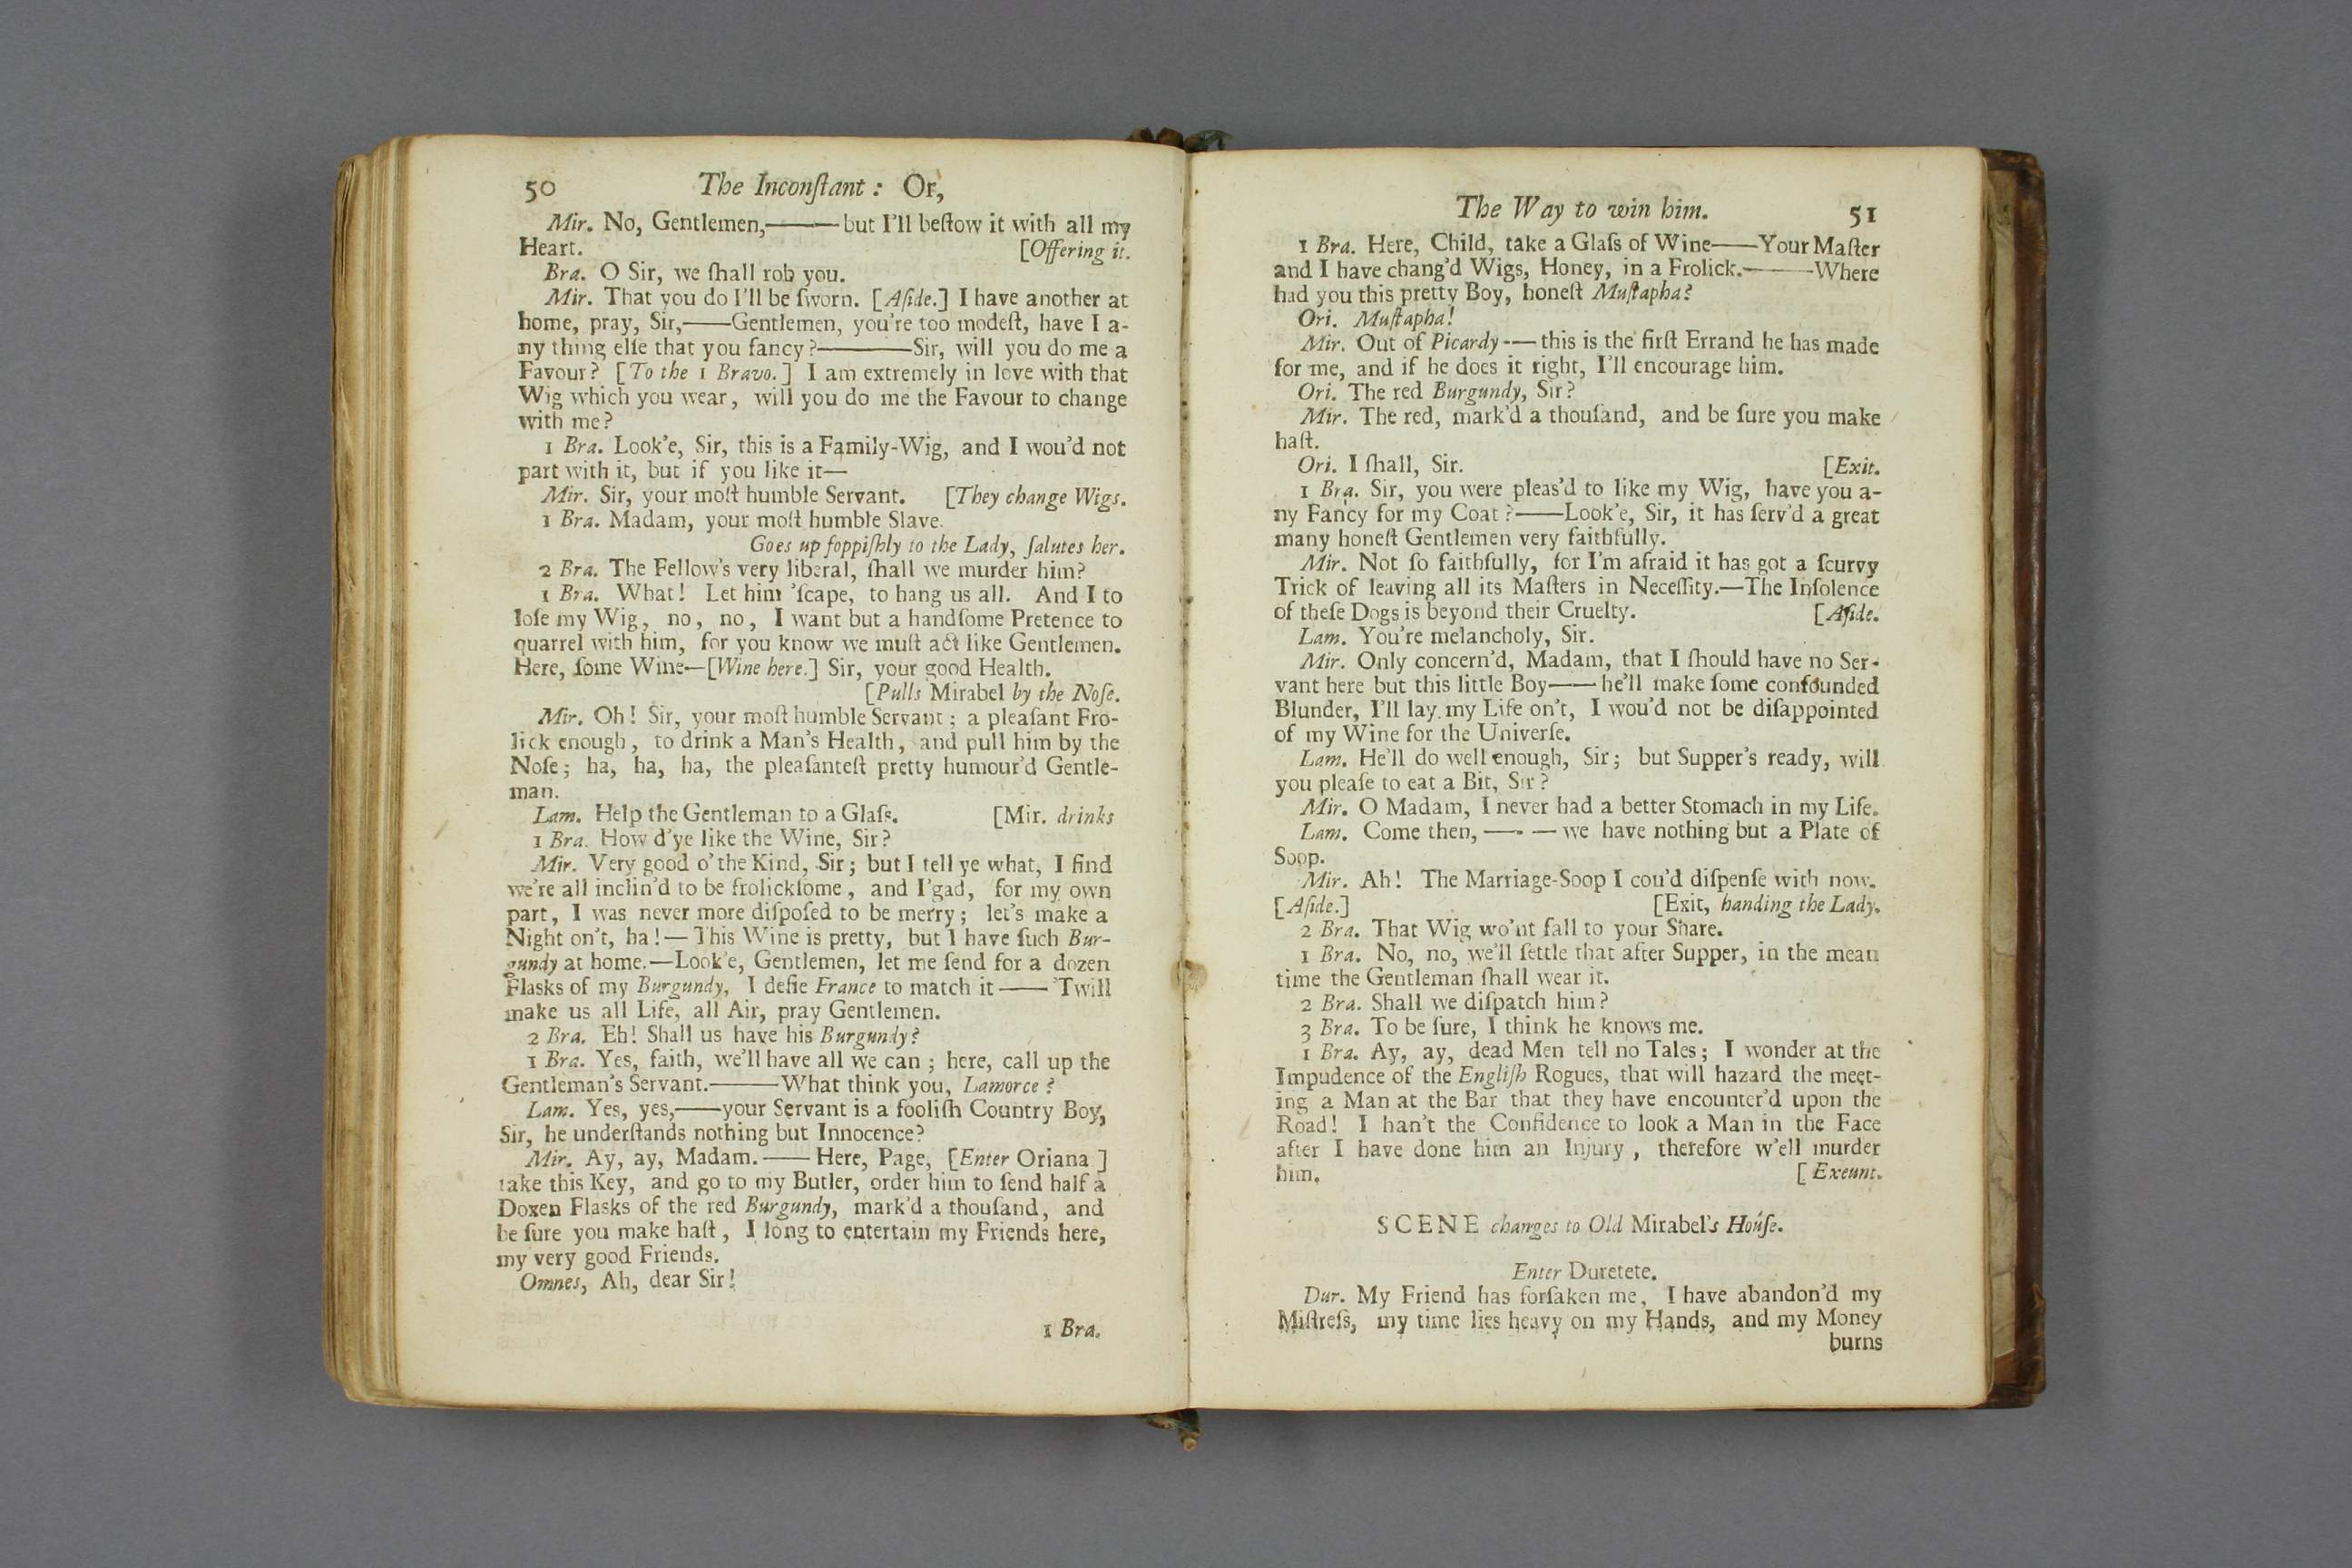 50 The Inconſtant: Or,
Mir. No, Gentlemen,——but I'll beſtow it with all my
Heart. [Offering it.
Bra. O Sir, we ſhall rob you.
Mir. That you do I'll be ſworn. [Aſide.] I have another at
home, pray, Sir,——Gentlemen, you're too modeſt, have I a-
ny thing elſe that you fancy?———Sir, will you do me a
Favour? [To the 1 Bravo.] I am extremely in love with that
Wig which you wear, will you do me the Favour to change
with me?
1 Bra. Look'e, Sir, this is a Family-Wig, and I wou'd not
part with it, but if you like it—
Mir. Sir, your moſt humble Servant. [They change Wigs.
1 Bra. Madam, your moſt humble Slave.
Goes up foppiſhly to the Lady, ſalutes her.
2 Bra. The Fellow's very liberal, ſhall we murder him?
1 Bra. What! Let him 'ſcape, to hang us all. And I to
loſe my Wig, no, no, I want but a handſome Pretence to
quarrel with him, for you know we muſt act like Gentlemen.
Here, ſome Wine—[Wine here.] Sir, your good Health.
[Pulls Mirabel by the Noſe.
Mir. Oh! Sir, your moſt humble Servant; a pleaſant Fro-
lick enough, to drink a Man's Health, and pull him by the
Noſe; ha, ha, ha, the pleaſanteſt pretty humour'd Gentle-
man.
Lam. Help the Gentleman to a Glaſs. [Mir. drinks
1 Bra. How d'ye like the Wine, Sir?
Mir. Very good o' the Kind, Sir; but I tell ye what, I find
we're all inclin'd to be frolickſome, and I'gad, for my own
part, I was never more diſpoſed to be merry; let's make a
Night on't, ha!— This Wine is pretty, but I have ſuch Bur-
gundy at home.—Look'e, Gentlemen, let me ſend for a dozen
Flasks of my Burgundy, I defie France to match it—— 'Twill
make us all Life, all Air, pray Gentlemen.
2 Bra. Eh! Shall us have his Burgundy?
1 Bra. Yes, faith, we'll have all we can; here, call up the
Gentleman's Servant.———What think you, Lamorce?
Lam. Yes, yes,——your Servant is a fooliſh Country Boy,
Sir, he underſtands nothing but Innocence?
Mir. Ay, ay, Madam.—— Here, Page, [Enter Oriana ]
take this Key, and go to my Butler, order him to ſend half a
Doxen Flasks of the red Burgundy, mark'd a thouſand, and
be ſure you make haſt, I long to entertain my Friends here,
my very good Friends.
Omnes, Ah, dear Sir!
1 Bra.
The Way to win him. 51
1 Bra. Here, Child, take a Glaſs of Wine——Your Maſter
and I have chang'd Wigs, Honey, in a Frolick.———Where
had you this pretty Boy, honeſt Muſtapha?
Ori. Muſtapha!
Mir. Out of Picardy -— this is the firſt Errand he has made
for me, and if he does it right, I'll encourage him.
Ori. The red Burgundy, Sir?
Mir. The red, mark'd a thouſand, and be ſure you make
haſt.
Ori. I ſhall, Sir. [Exit.
1 Bra. Sir, you were pleas'd to like my Wig, have you a-
ny Fancy for my Coat?——Look'e, Sir, it has ſerv'd a great
many honeſt Gentlemen very faithfully.
Mir. Not ſo faithfully, for I'm afraid it has got a ſcurvy
Trick of leaving all its Maſters in Neceſſity.—The Inſolence
of theſe Dogs is beyond their Cruelty. [Aſide.
Lam. You're melancholy, Sir.
Mir. Only concern'd, Madam, that I ſhould have no Ser-
vant here but this little Boy—— he'll make ſome confounded
Blunder, I'll lay my Life on't, I wou'd not be diſappointed
of my Wine for the Univerſe.
Lam. He'll do well enough, Sir; but Supper's ready, will
you pleaſe to eat a Bit, Sir?
Mir. O Madam, I never had a better Stomach in my Life.
Lam. Come then, —- — we have nothing but a Plate of
Soop.
Mir. Ah! The Marriage-Soop I cou'd diſpenſe with now.
[Aſide.] [Exit, handing the Lady.
2 Bra. That Wig wo'nt fall to your Share.
1 Bra. No, no, we'll ſettle that after Supper, in the mean
time the Gentleman ſhall wear it.
2 Bra. Shall we diſpatch him?
3 Bra. To be ſure, I think he knows me.
1 Bra. Ay, ay, dead Men tell no Tales; I wonder at the
Impudence of the Engliſh Rogues, that will hazard the meet-
ing a Man at the Bar that they have encounter'd upon the
Road! I han't the Confidence to look a Man in the Face
after I have done him an Injury, therefore w'ell murder
him. [Exeunt.
SCENE changes to Old Mirabel's Houſe.
Enter Duretete.
Dur. My Friend has forſaken me, I have abandon'd my
Miſtreſs, my time lies heavy on my Hands, and my Money
burns